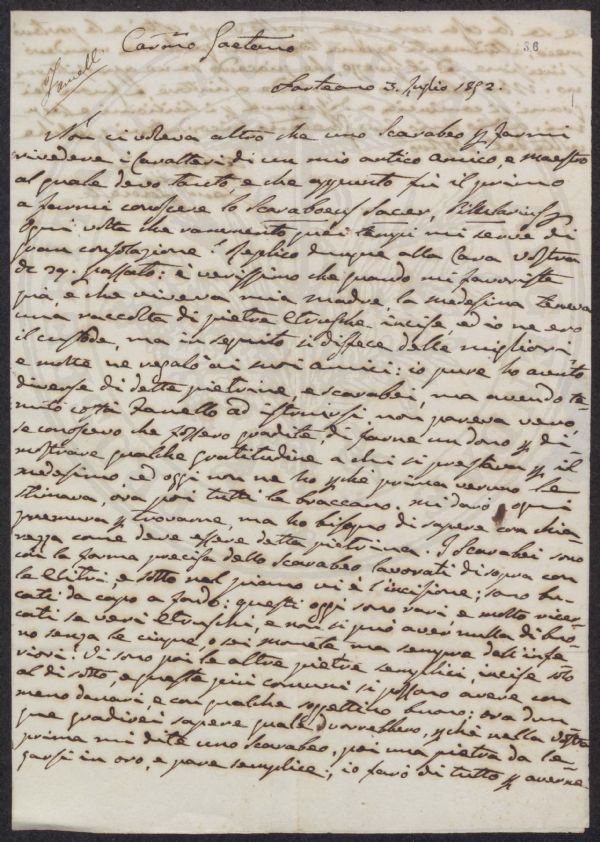 Fanelli
Car.mo Gaetano
36
Sarteano 3. Luglio 1852.
Non ci voleva altro che uno Scarabeo p farmi
rivedere i Caratteri di un mio antico amico, e maestro
al quale devo tanto, e che appunto fu il primo
a farmi conoscere lo Scaraboeus Sacer,
Ogni volta che rammento quei tempi mi serve di
gran consolazione! Replico dunque alla Cara vostra
de 29. passato: è verissimo che quando mi favoriste
già, e che viveva mia madre, la medesima teneva
una raccolta di pietre Etrusche incise, ed io ne ero
il custode, ma in seguito si disfece delle migliori
e molte ne regalò ai suoi amici: io pure ho avuto
diverse di dette pietrine, e scarabei, ma avendo te-
nuto costì Fanello ad istruirsi non pareva vero
se conoscevo che fossero gradite, di farne un dono p di-
mostrare qualche gratitudine a chi si prestava p il
medesimo, ed oggi non ne ho p chè prima veruno le
stimava, ora poi tutti le braccano. mi darò ogni
premura p trovarne, ma ho bisogno di sapere con chia-
rezza come deve essere detta pietrina. I Scarabei sono
con la forma precisa dello Scarabeo lavorati di sopra con
le Elitri, e sotto nel piano vi è l'incisione; sono bu-
cati da capo a fondo: questi oggi sono rari, e molto ricer-
cati se veri Etruschi, e non si può aver nulla di buo-
no senza le cinque, o sei monete ma sempre dell'infe-
riori: Vi sono poi le altre pietre semplici, incise solo
al di sotto, e queste più comuni si possono avere con
meno danari, e con qualche soggettino buono; ora dun-
que gradirei sapere quale vorrebbero, p chè nella vostra
prima mi dite uno Scarabeo, poi una pietra da le-
garsi in oro, e pare semplice; io farò di tutto p averne